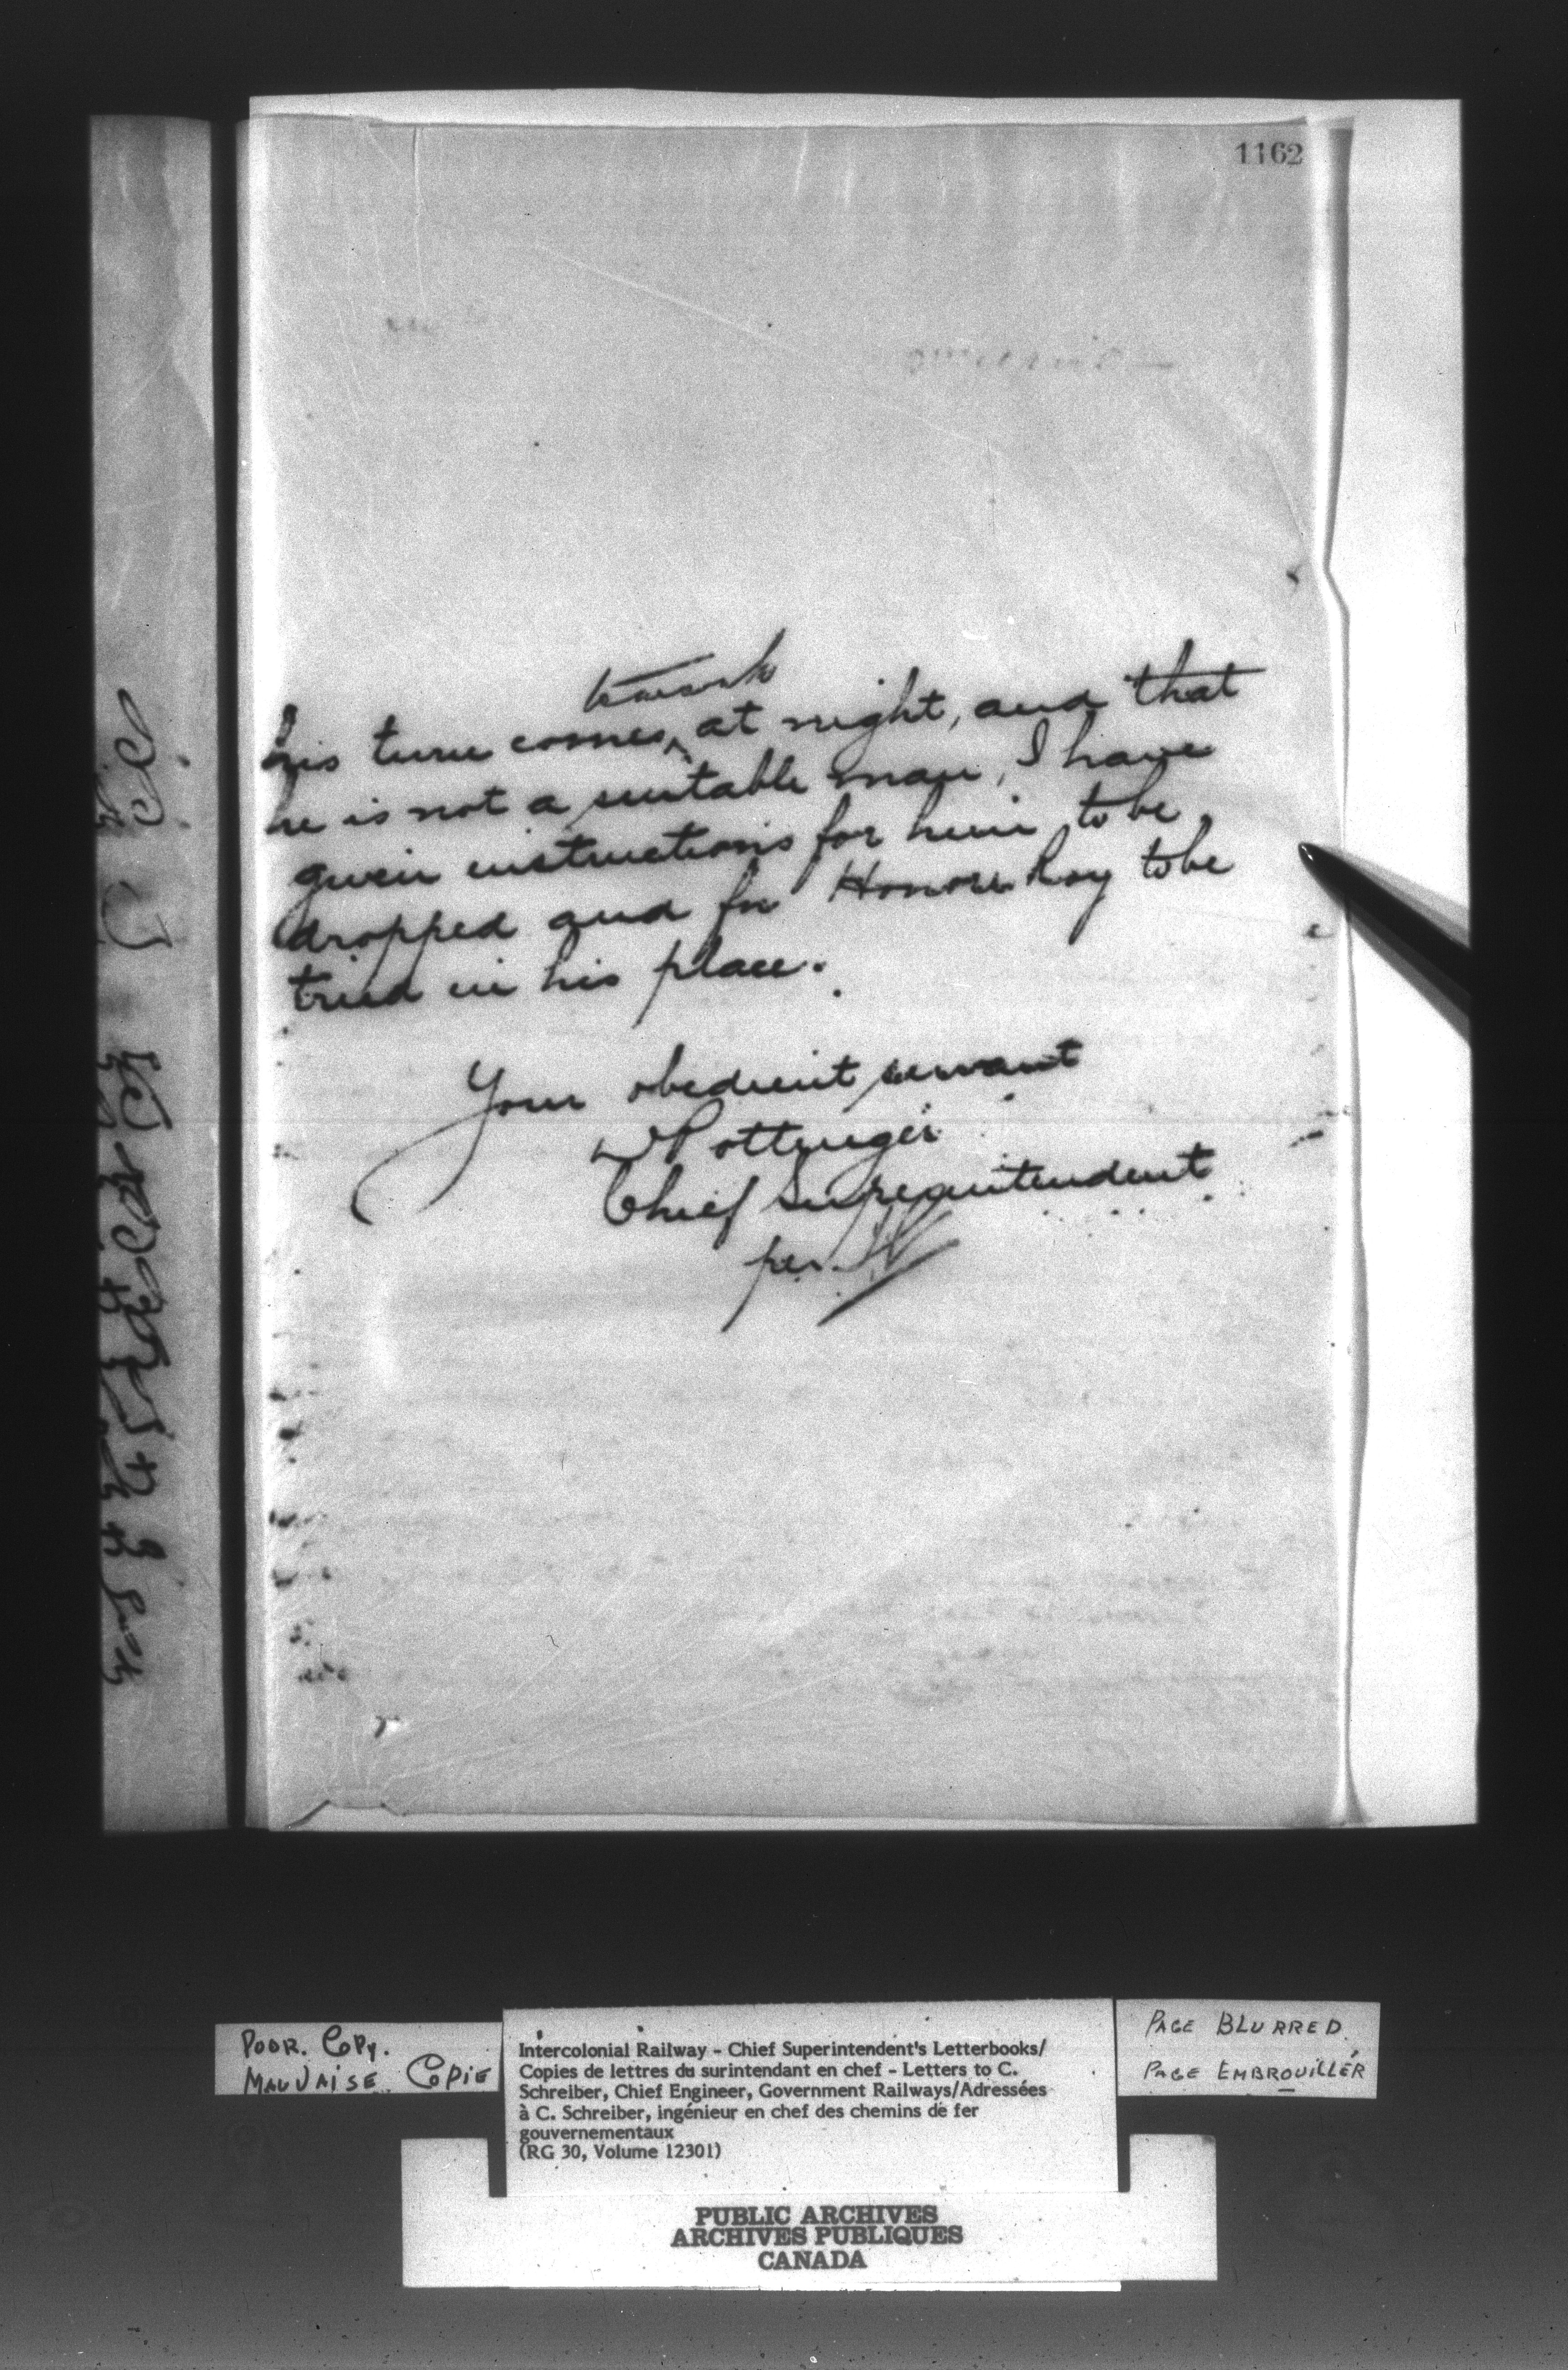 1162
to work
his turn comes, at night, and that
he is not a suitable man, I have
given instructions for him to be
dropped and for Honore Roy to be
tried in his place.
Your obedient servant
D Pottinger
Chief Superintendent
per
POOR. COPY.
MAUVAISE COPIE
Intercolonial Railway - Chief Superintendent's Letterbooks/
Copies de lettres du surintendant en chef - Letters to C.
Schreiber, Chief Engineer, Government Railways/Adressées
à C. Schreiber, ingénieur en chef des chemins de fer
gouvernementaux
(RG 30, Volume 12301)
PAGE BLURRED
PAGE EMBROUILLÉR
PUBLIC ARCHIVES
ARCHIVES PUBLIQUES
CANADA